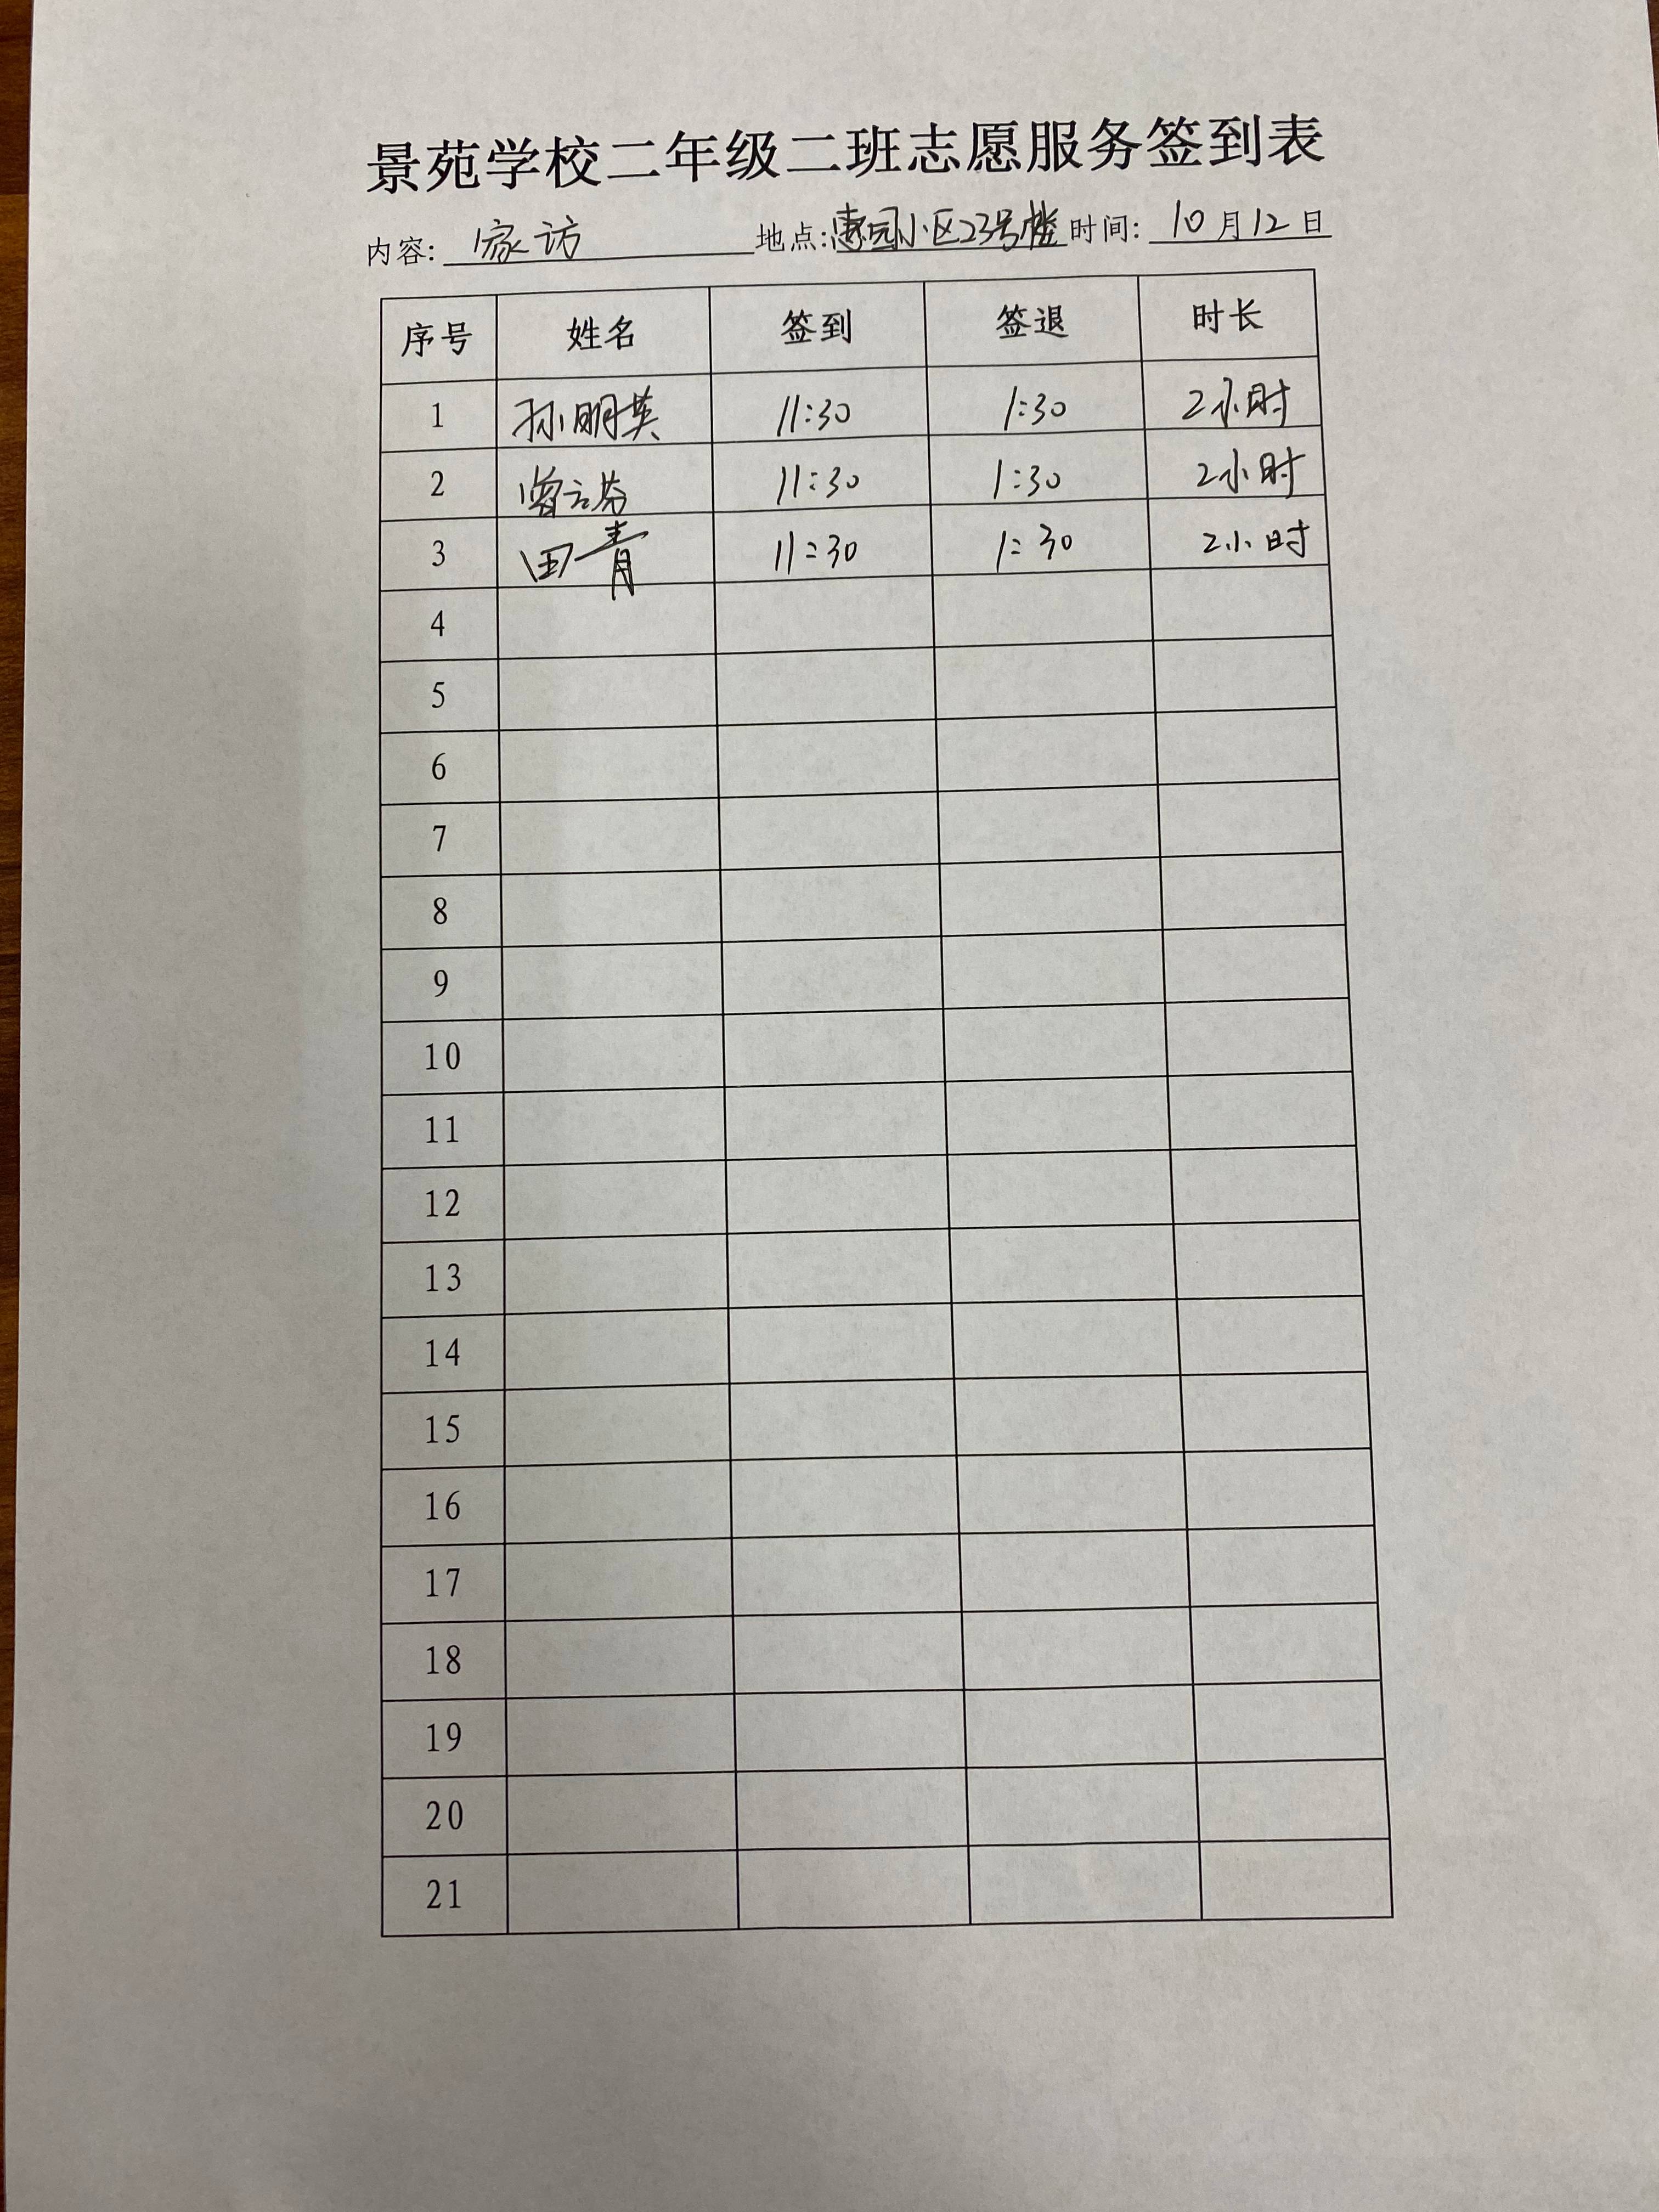 景苑学校二年级二班志愿服务签到表
内容: 家访 地点: 惠园小区23号楼 时间: 10月12日
序号 姓名 签到 签退 时长
1 孙明英 11:30 1:30 2小时
2 曾云芬 11:30 1:30 2小时
3 田青 11:30 1:30 2小时
4
5
6
7
8
9
10
11
12
13
14
15
16
17
18
19
20
21